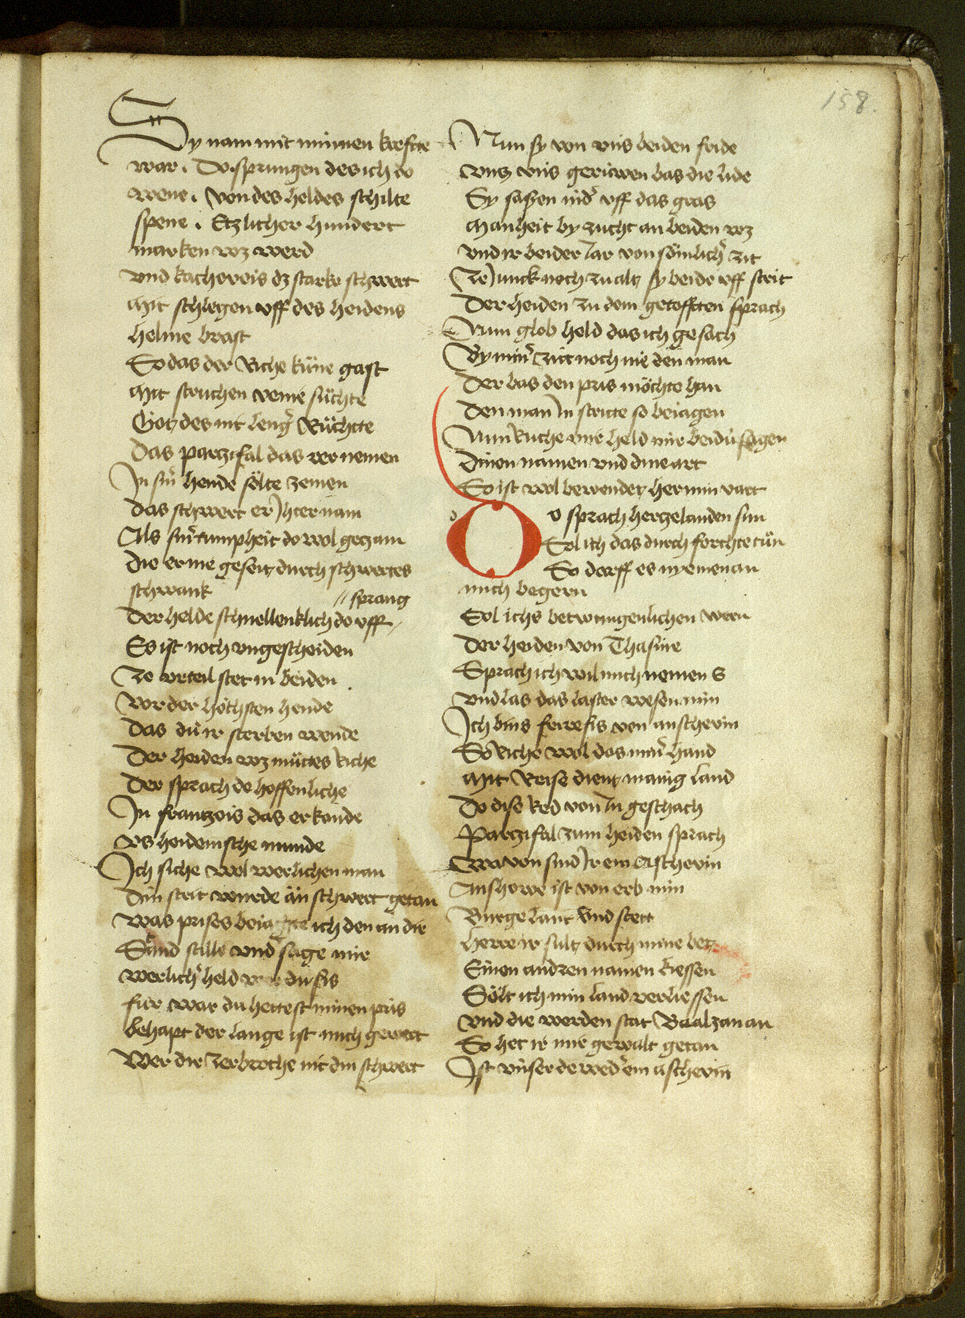 158.
Sy nam mit minnen krefte
war. Do sprungen des ich do
wene. Von des heldes schilte
spene. Etzlicher hundert
marken wz werd
vnd kachereis dz starke schwert
Mit schlegen vff des heidens
helme brast
So das der riche küne gast
Mit struchen venie suchte
Got des nit leng ruchte
Das parzifal das rer nemen
In siner hende sölte zemen
Das schwert er Ither nam
Als siner tumpheit do wol gezam
Die er nie geseig durch schwertes
schwank
// sprang
Der helde schnellenklich do vff //
Es ist noch vngescheiden
Ze vrteil stet in beiden
Vor der höchsten hende
Das dü ir sterben wende
Der heiden wz mütes riche
Der sprach do hoffenliche
In franzois das er konde
Vs heidensche munde
Ich siche wol werlicher man
Din strit wurde än schwert getan
Was prises ich den an dir
Stand stille vnd sage mir
werlicher held wer du sis
für war du hettest minen pris
behapt der lange ist mich gewert
Wer dir zerbroche nit din schwert
Nun sy von vns beiden fride
vntz vns geruwen bas die lide
Sy sassen nider vff das gras
Manheit by zucht an beiden wz
vnd ir beider Jar von sömlicher zit
Ze Junck noch zu alt sy beide vff strit
Der heiden zu dem getofften sprach
Nun glob held das ich gesach
By miner zitt noch nie den man
Der bas den pris möchte han
Den man In stritte so beiagen
Nun ruche mir held mir beidü sagen
Dinen namen vnd dine art
So ist wol bewendet her min vart
Do sprach herzelanden sun
Sol ich das durch forchte tün
So dorff es nyeman an
mich begern
Sol ichs betwungenlichen wern
Der heiden von Thasme
Sprach ich wil mich nemen E
vnd las das laster wesen min
Ich bins ferefis von anschevin
So riche wol das miner hand
Mit reise dient manig land
Do dise red von Im geschach
Parzifal zum heiden sprach
Wa von sind Ir ein Aschevin
Anshowe ist von erb min
Burge lant vnd stett
herre ir sult durch mine bet
Einen andren namen kiessen
Sölt ich min land verliessen
Vnd die werden stat Baalzanan
So het ir mir gewalt getan
Ist vnser dewedrer ein ascherin